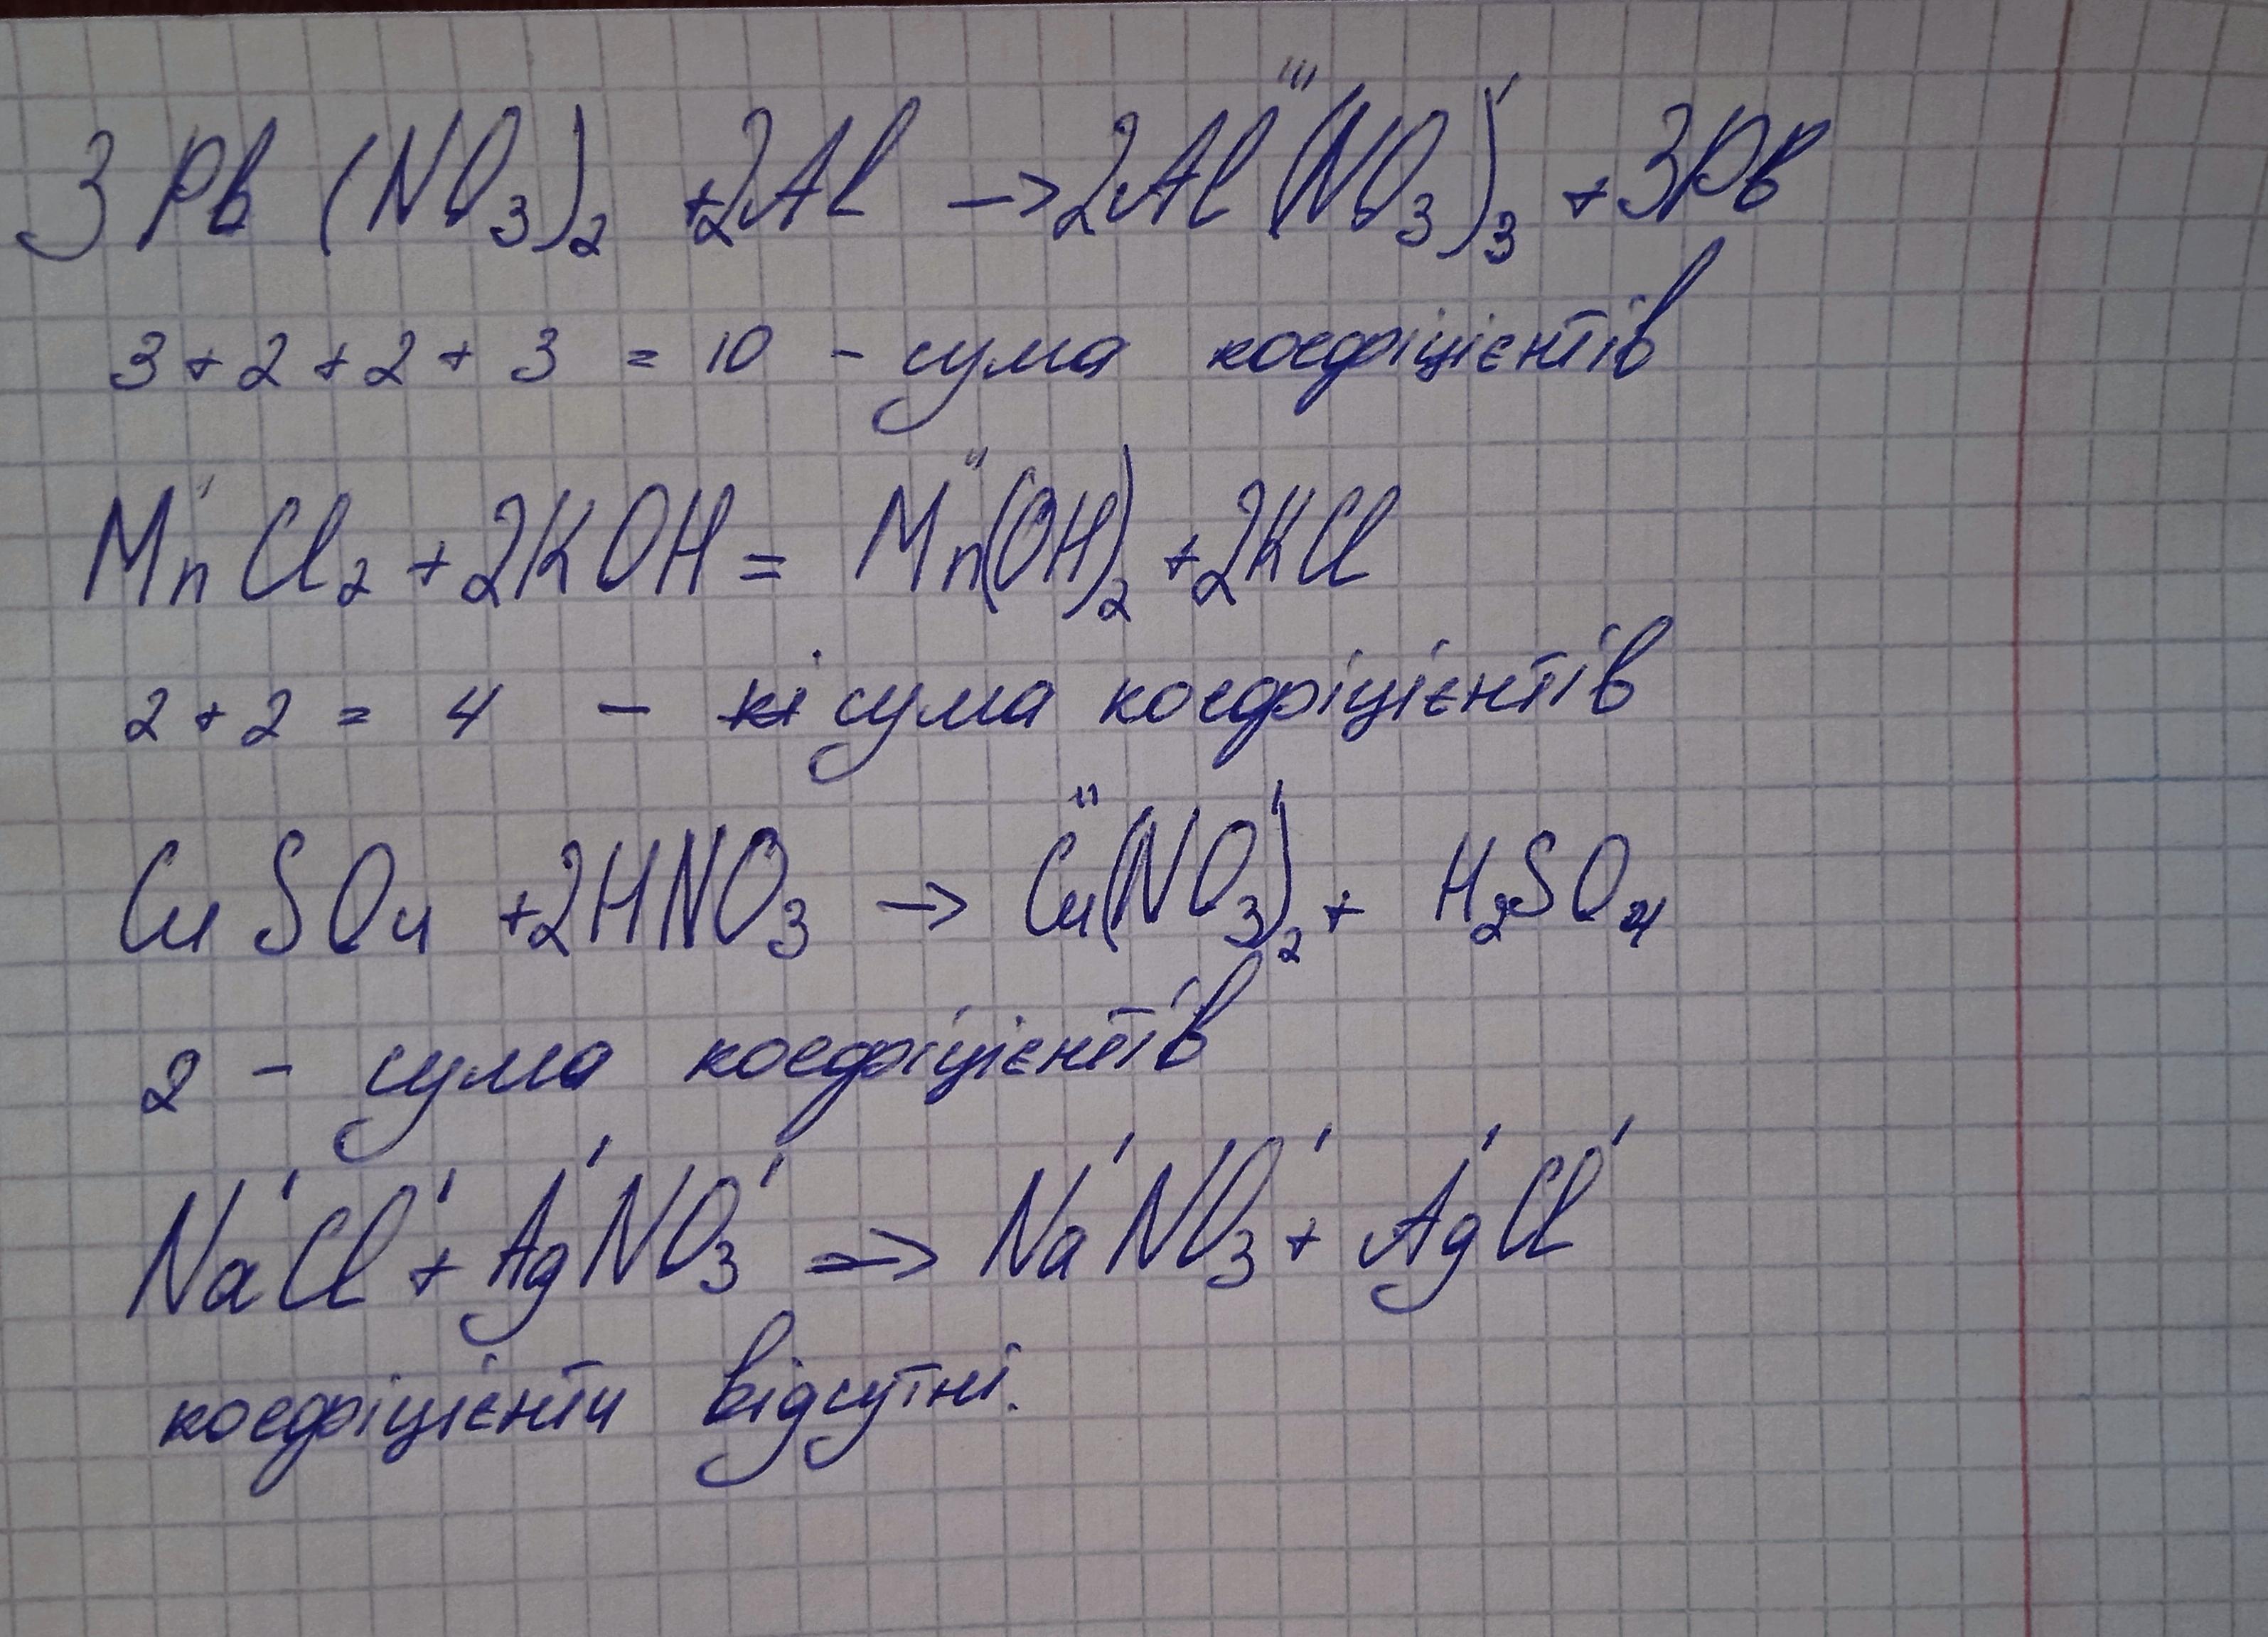 3Pb(NO₃)₂ +2Al → 2Al(NO₃)₃ + 3Pb
3 + 2 + 2 + 3 = 10 - сума коефіцієнтів
MnCl₂ + 2KOH = Mn(OH)₂ + 2KCl
2 + 2 = 4 - кі сума коефіцієнтів
CuSO₄ +2HNO₃ → Cu(NO₃)₂ + H₂SO₄
2 - сума коефіцієнтів
NaCl + AgNO₃ → NaNO₃ + AgCl
коефіцієнти відсутні.